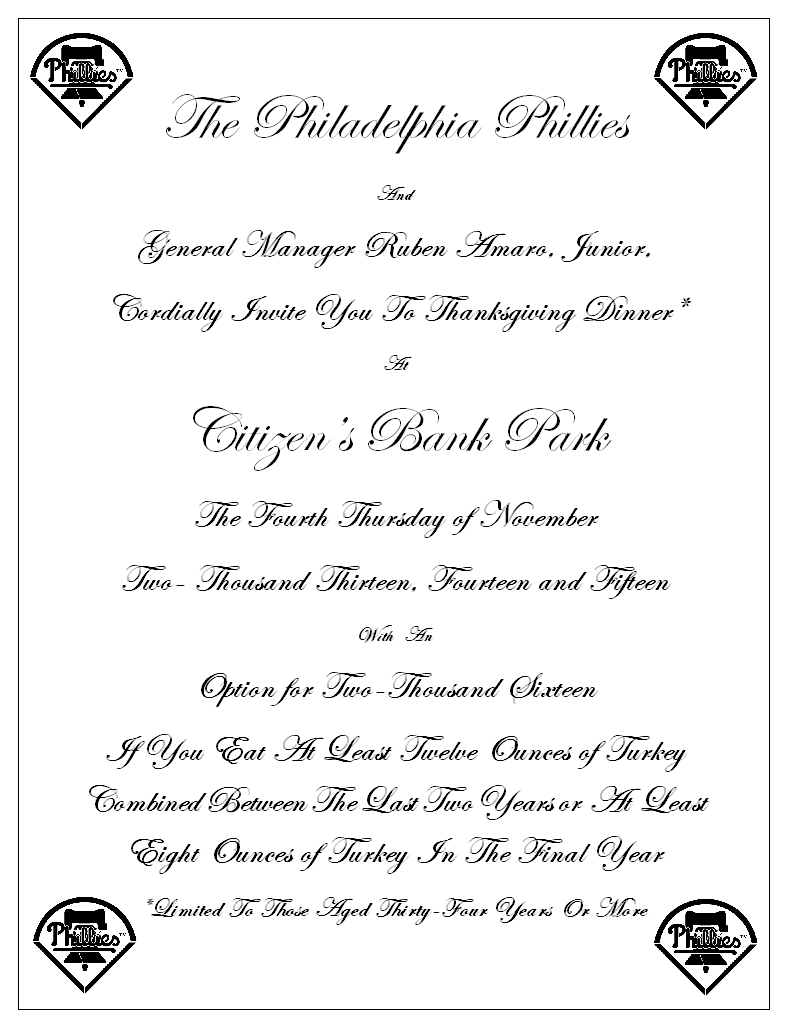 Phillies Phillies
The Philadelphia Phillies
And
General Manager Ruben Amaro, Junior,
Cordially Invite You To Thanksgiving Dinner*
At
Citizen's Bank Park
The Fourth Thursday of November
Two- Thousand Thirteen, Fourteen and Fifteen
With An
Option for Two-Thousand Sixteen
If You Eat At Least Twelve Ounces of Turkey
Combined Between The Last Two Years or At Least
Eight Ounces of Turkey In The Final Year
*Limited To Those Aged Thirty-Four Years Or More
Phillies Phillies